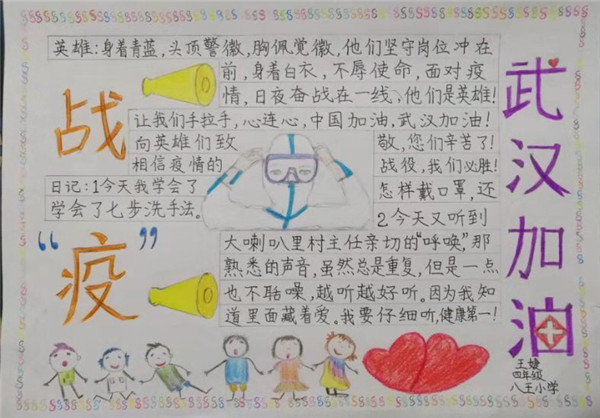 英雄:身着青蓝,头顶警徽,胸佩党徽,他们坚守岗位冲在
前,身着白衣,不辱使命,面对疫
情,日夜奋战在一线、他们是英雄!
让我们手拉手,心连心,中国加油,武汉加油!
向英雄们致 敬,您们辛苦了!
相信疫情的 战役,我们必胜!
日记:1今天我学会了 怎样戴口罩,还
学会了七步洗手法。
2.今天又听到
大喇叭里村主任亲切的“呼唤”,那
熟悉的声音,虽然总是重复,但是一点
也不聒噪,越听越好听。因为我知
道里面藏着爱。我要仔细听,健康第一!
战
“疫”
武汉加油
王
四年级
八王小学